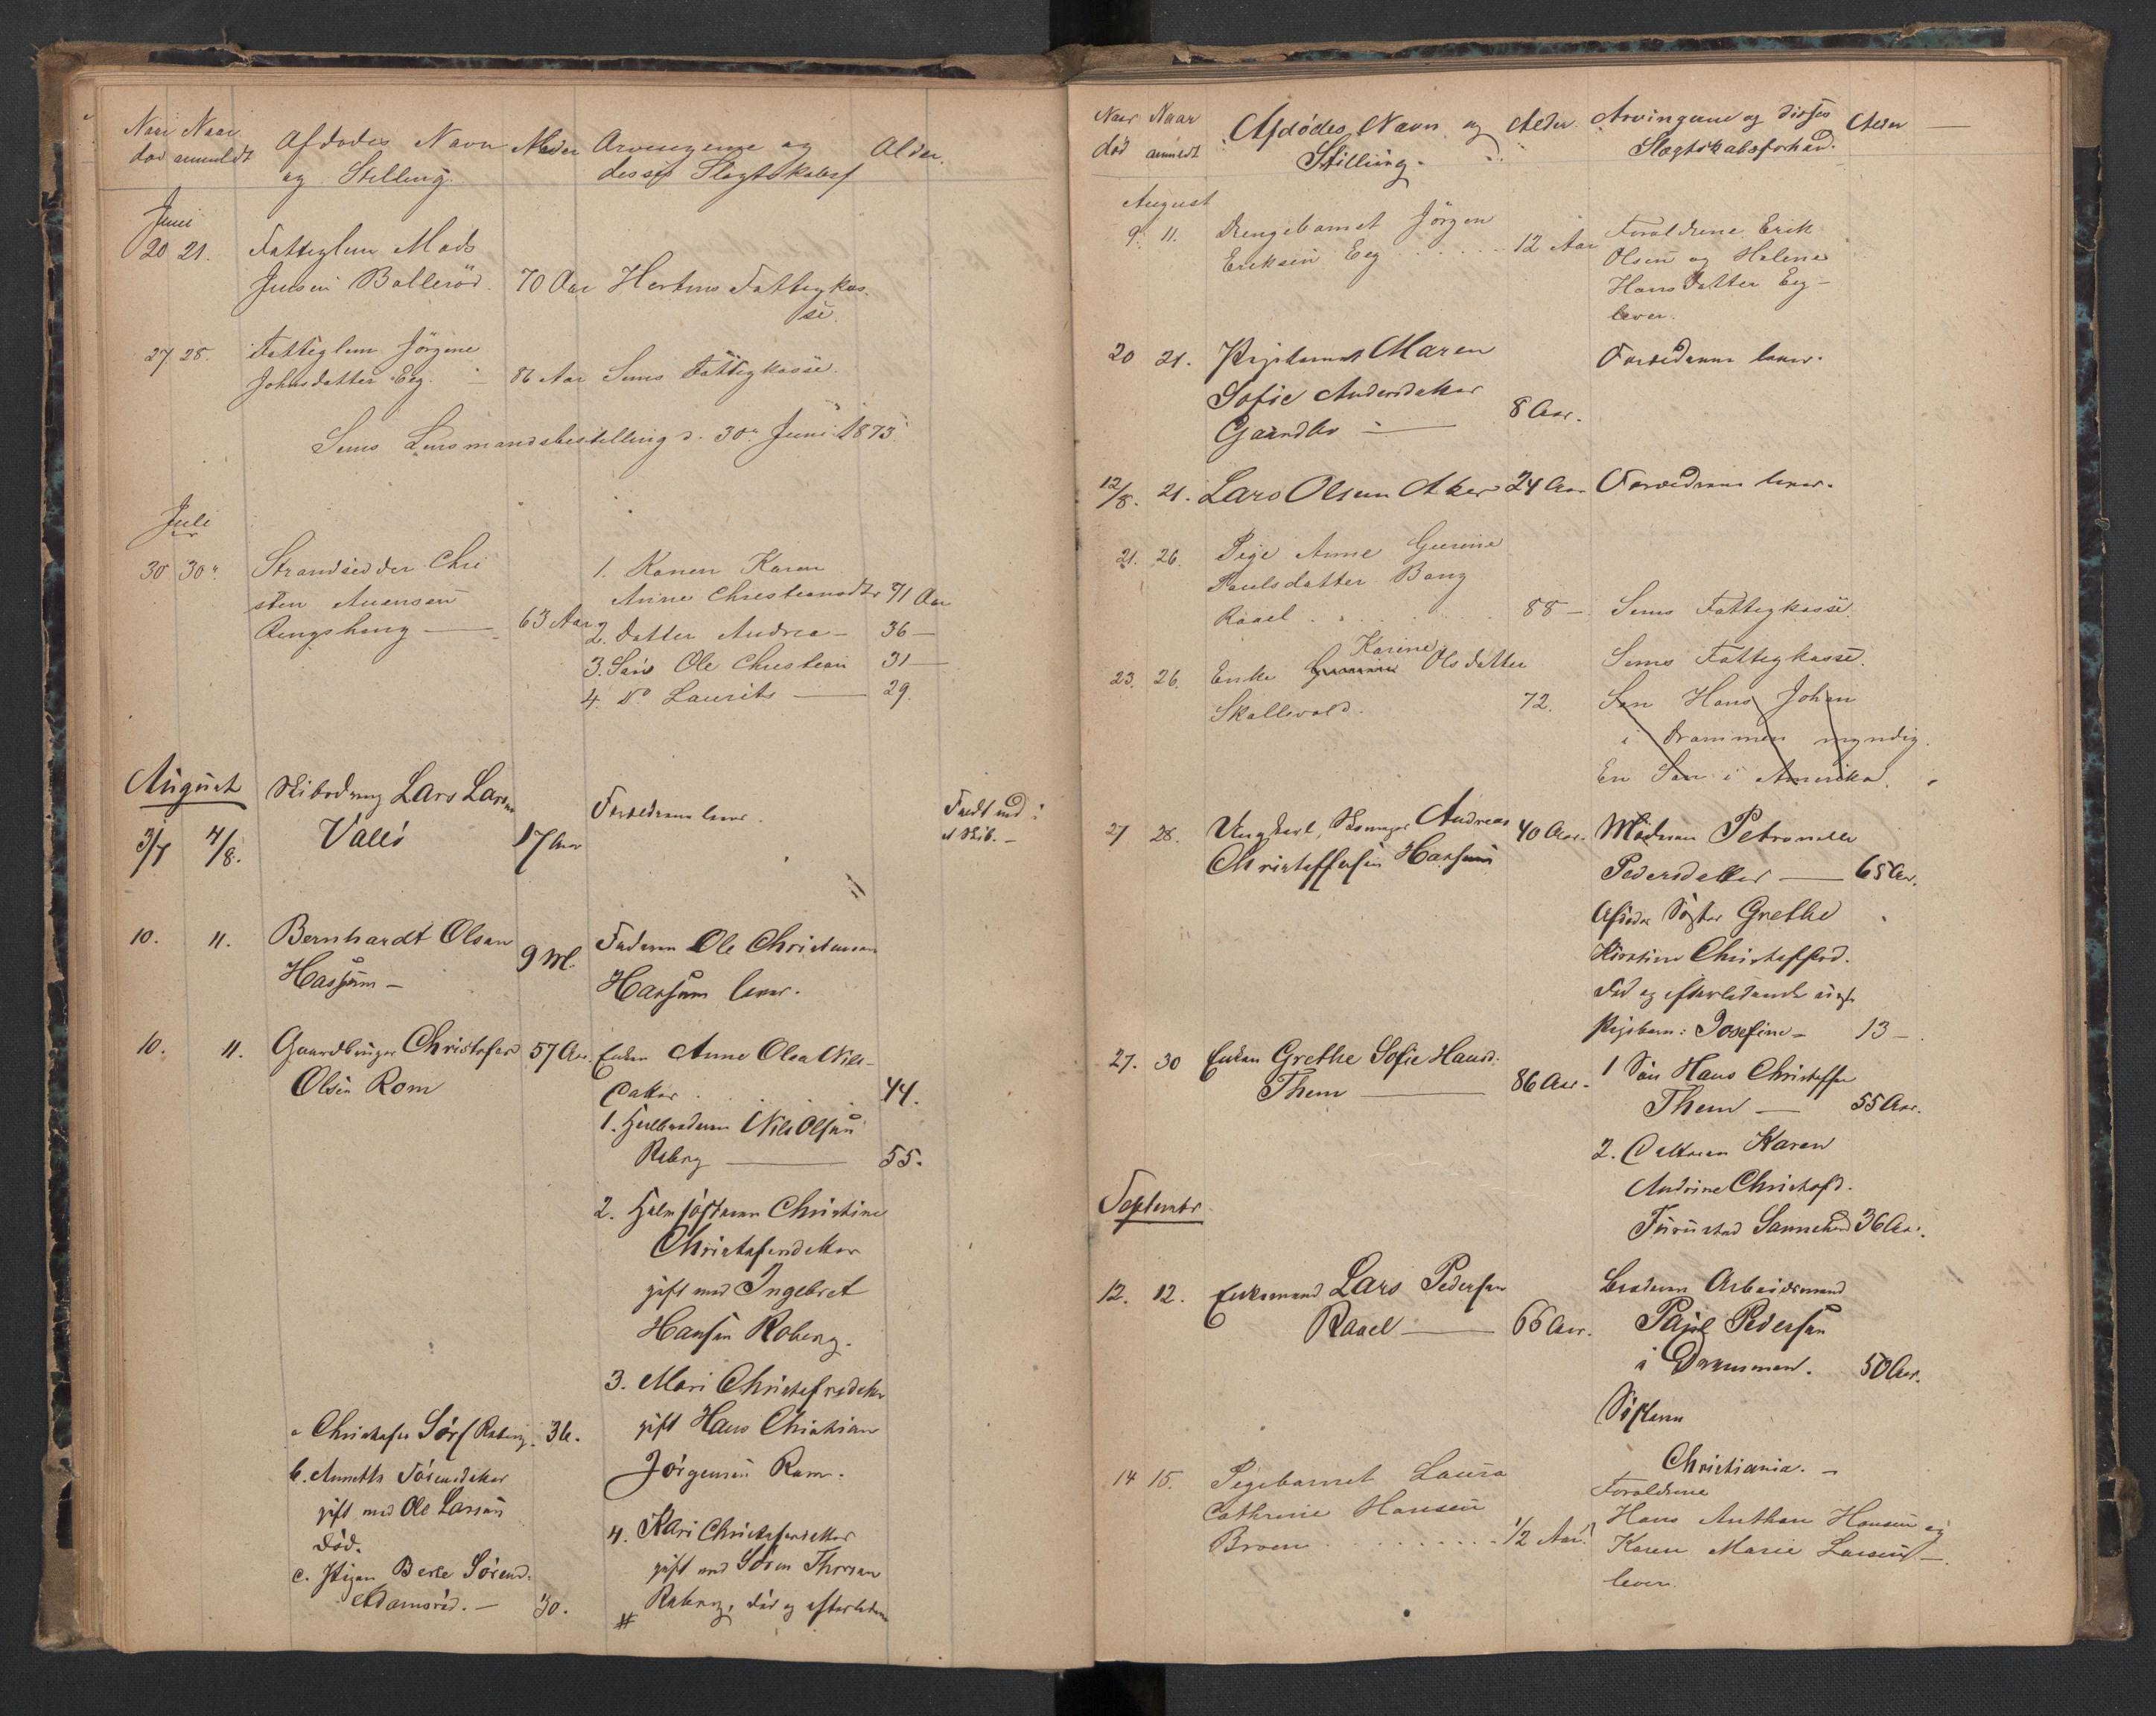 Naar Naar Afdødes Navn Alder Arvingerne og Alder.
død anmeldt og Stilling. disses Slægtskabsf
Juni
20 21. Fattiglem Mads
Jensen Bollerød. 70 Aar Hertens Fattigkas-
se.
27 28. Fattiglem Jørgine
Johnsdatter Eeg. — 86 Aar Sems Fattigkasse.
Sems Lensmandsbestilling d. 30te Juni 1873.
Juli
30 30te Strandsidder Chri
sten
Ringshaug — 63 Aar
1. Konen Karen
Anne Christiansdtr 71 Aar
2. Datter Andrea — 36 —
3. Søn Ole Christian 31 —
4. Do Laurits — 29.
August Skibsdreng Lars Larsen Forældrene lever. Faldt ned i
3/7 4/8. Vallø 17 Aar et Skib. —
10. 11. Bernhardt Olsen 9 M. Faderen Ole Christensen
Hassum — Hassum lever.
10. 11. Gaardbruger Christofer 57 Aar. Enken Anne Olea Nils-
Olsen Rom datter. 44.
1. Halbroderen Nils Olsen
Roberg — 55.
2. Halvsøsteren Christine
Christofersdatter
gift med Ingebret
Hansen Roberg.
3. Mari Christofersdatter
gift Hans Christian
Jørgensen Rom.
4. Kari Christofersdatter
gift med Søren Thorsen
# Roberg, død og efterladene
a Christofer Sørs Roberg. 36.
b. Annette Sørensdatter
gift med Ole Larsen
død.
c. Pigen Berte Sørensd.
Adamsrød. — 30.
Naar Naar Afdødes Navn og Alder. Arvingerne og disses Alder —
død anmeldt Stilling. Slægtskabsforhold.
August
9. 11. Drengebarnet Jørgen
Eriksen Eeg . . . . . 12 Aar
Forældrene Erik
Olsen og Helene
Hansdatter Eeg —
lever.
20 21. Pigebarnet Maren Forældrene lever.
Sofie Andersdatter
Gaardbo — 8 Aar.
12/8. 21. Lars Olsen Aker 24 Aar Forældrene lever.
21. 26. Pige Anne Gurine
Paulsdatter Bang
Raael . . . . . . 88 — Sems Fattigkasse.
Karine
23. 26. Enke Olsdatter Sems Fattigkasse.
Skallevold. 72. Søn Hans Johan
i Drammen myndig.
En Søn i Amerika.
27 28. Ungkarl, Andreas 40 Aar. Moderen Petronelle
Christoffersen Hassum Pedersdatter — 65 Aar.
Afdøde Søster Grethe
Kirstine Christoffersd.
død og efterladende
Pigebarn: Josefine — 13 —
27. 30 Enken Grethe Sofie Hansd. 1 Søn Hans Christoffer
Them — 86 Aar. Them — 55 Aar.
2. Datteren Karen
Andrine Christofd.
Furustad Sannehed 36 Aar.
September
12. 12. Enkemand Lars Pedersen Broderen Arbeidsmand
Raael — 66 Aar. Paul Pedersen
i Drammen. 50 Aar.
Søsteren
Christiania. —
14 15. Pigebarnet Laura
Cathrine Hansen
Broen . . . . . . . 1/2 Aar.
Forældrene
Hans Anthon Hansen og
Karen Marie Larsen —
lever.